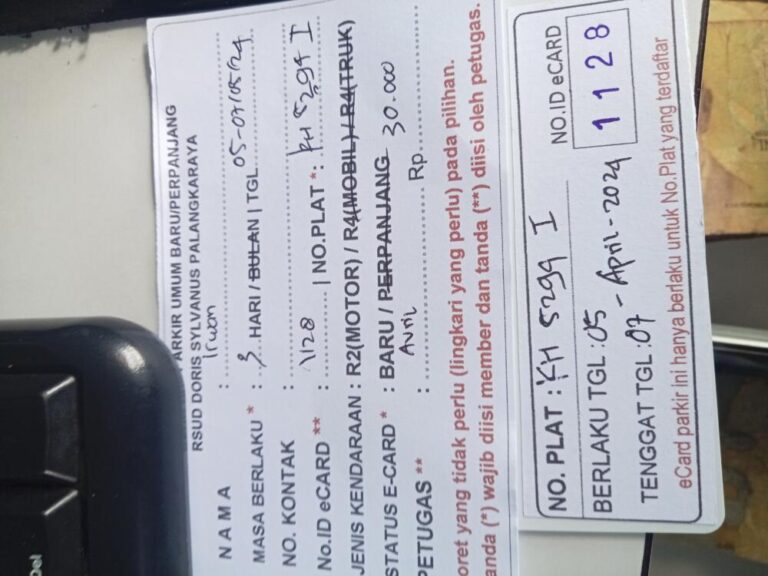 PARKIR UMUM BARU/PERPANJANG
RSUD DORIS SYLVANUS PALANGKARAYA
N A M A : Ilwon
MASA BERLAKU * : 3 HARI / BULAN | TGL 05-07/05/24
NO. KONTAK :
No.ID eCARD ** : 1128 | NO.PLAT * : KH 5299 I
JENIS KENDARAAN : R2(MOTOR) / R4(MOBIL) / R4(TRUK)
STATUS E-CARD * : BARU / PERPANJANG
PETUGAS ** : Avril Rp 30.000
oret yang tidak perlu (lingkari yang perlu) pada pilihan.
anda (*) wajib diisi member dan tanda (**) diisi oleh petugas.
NO. PLAT : KH 5299 I
NO.ID eCARD
1128
BERLAKU TGL : 05
TENGGAT TGL : 07 - April - 2024
eCard parkir ini hanya berlaku untuk No.Plat yang terdaftar
Del